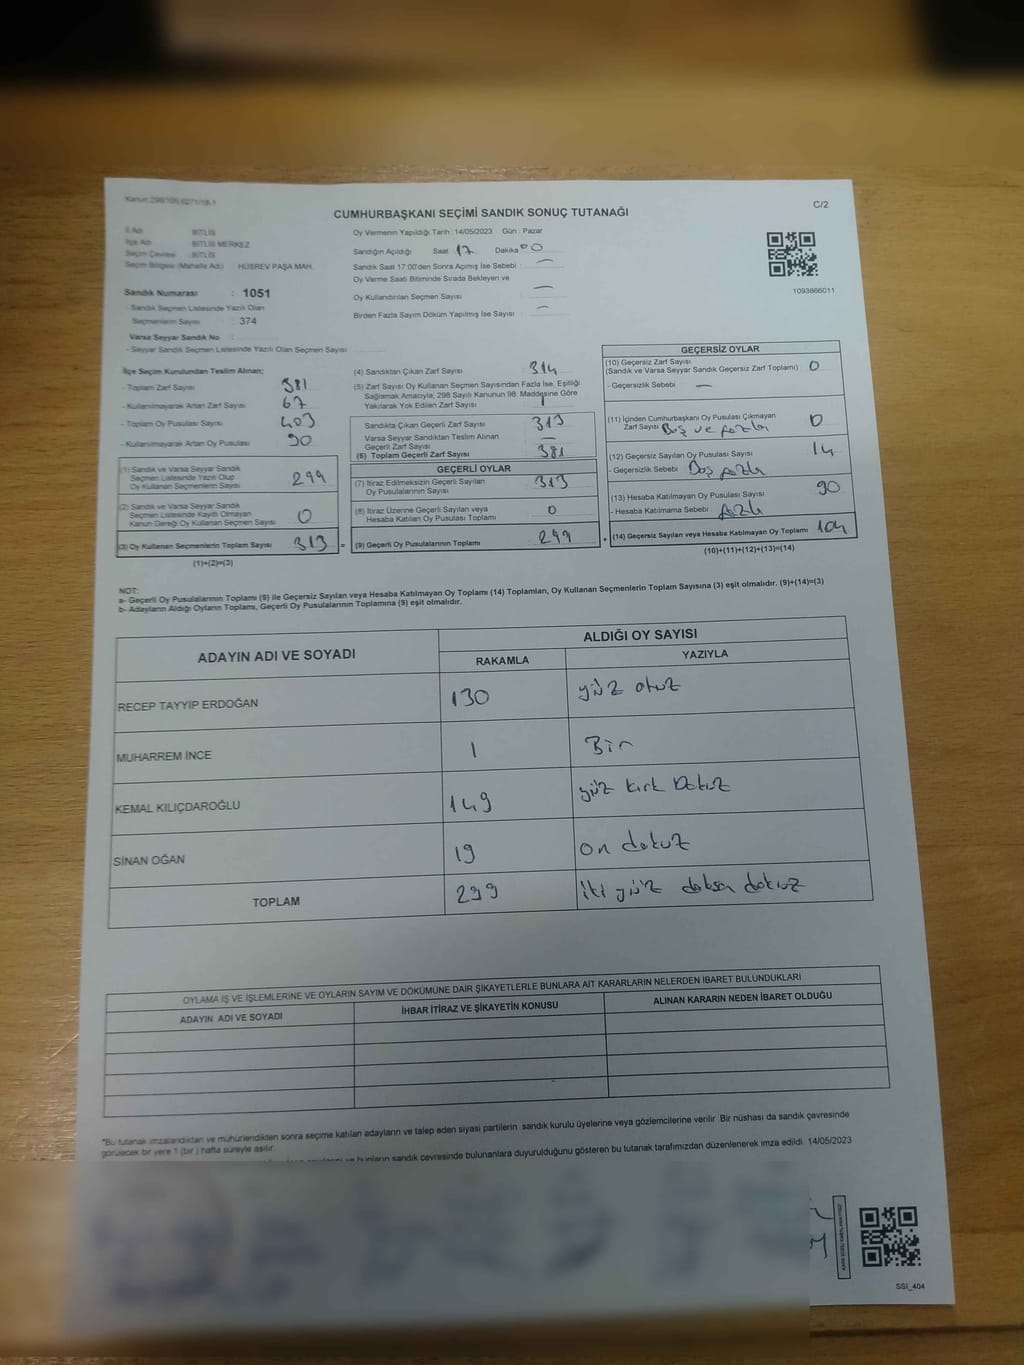 Kanun:298/109,6271/19-1
C/2
CUMHURBAŞKANI SEÇİMİ SANDIK SONUÇ TUTANAĞI
İl Adı : BİTLİS
İlçe Adı : BİTLİS MERKEZ
Seçim Çevresi : BİTLİS
Seçim Bölgesi (Mahalle Adı) : HÜSREV PAŞA MAH.
Sandık Numarası : 1051
- Sandık Seçmen Listesinde Yazılı Olan
Seçmenlerin Sayısı : 374
Varsa Seyyar Sandık No :
- Seyyar Sandık Seçmen Listesinde Yazılı Olan Seçmen Sayısı
Oy Vermenin Yapıldığı Tarih :14/05/2023 Gün : Pazar
Sandığın Açıldığı Saat 17 Dakika 00
Sandık Saat 17:00'den Sonra Açmış İse Sebebi : —
Oy Verme Saati Bitiminde Sırada Bekleyen ve
Oy Kullandırılan Seçmen Sayısı : —
Birden Fazla Sayım Döküm Yapılmış İse Sayısı : —
1093666011
İlçe Seçim Kurulundan Teslim Alınan;
- Toplam Zarf Sayısı 381
- Kullanılmayarak Artan Zarf Sayısı 67
- Toplam Oy Pusulası Sayısı 403
- Kullanılmayarak Artan Oy Pusulası 90
(1) Sandık ve Varsa Seyyar Sandık
Seçmen Listesinde Yazılı Olup
Oy Kullanan Seçmenlerin Sayısı 299
(2) Sandık ve Varsa Seyyar Sandık
Seçmen Listesinde Kayıtlı Olmayan
Kanun Gereği Oy Kullanan Seçmen Sayısı 0
(3) Oy Kullanan Seçmenlerin Toplam Sayısı 313 =
(1)+(2)=(3)
(4) Sandıktan Çıkan Zarf Sayısı 314
(5) Zarf Sayısı Oy Kullanan Seçmen Sayısından Fazla İse, Eşitliği
Sağlamak Amacıyla, 298 Sayılı Kanunun 98. Maddesine Göre
Yakılarak Yok Edilen Zarf Sayısı 1
Sandıkta Çıkan Geçerli Zarf Sayısı 313
Varsa Seyyar Sandıktan Teslim Alınan
Geçerli Zarf Sayısı —
(6) Toplam Geçerli Zarf Sayısı 381
GEÇERLİ OYLAR
(7) İtiraz Edilmeksizin Geçerli Sayılan
Oy Pusulalarının Sayısı 313
(8) İtiraz Üzerine Geçerli Sayılan veya
Hesaba Katılan Oy Pusulası Toplamı 0
(9) Geçerli Oy Pusulalarının Toplamı 299 +
GEÇERSİZ OYLAR
(10) Geçersiz Zarf Sayısı
(Sandık ve Varsa Seyyar Sandık Geçersiz Zarf Toplamı) 0
- Geçersizlik Sebebi —
(11) İçinden Cumhurbaşkanı Oy Pusulası Çıkmayan
Zarf Sayısı Boş ve fazla 0
(12) Geçersiz Sayılan Oy Pusulası Sayısı 14
- Geçersizlik Sebebi Boş fazla
(13) Hesaba Katılmayan Oy Pusulası Sayısı 90
- Hesaba Katılmama Sebebi fazla
(14) Geçersiz Sayılan veya Hesaba Katılmayan Oy Toplamı 104
(10)+(11)+(12)+(13)=(14)
NOT:
a- Geçerli Oy Pusulalarının Toplamı (9) ile Geçersiz Sayılan veya Hesaba Katılmayan Oy Toplamı (14) Toplamları, Oy Kullanan Seçmenlerin Toplam Sayısına (3) eşit olmalıdır. (9)+(14)=(3)
b- Adayların Aldığı Oyların Toplamı, Geçerli Oy Pusulalarının Toplamına (9) eşit olmalıdır.
ADAYIN ADI VE SOYADI
ALDIĞI OY SAYISI
RAKAMLA YAZIYLA
RECEP TAYYİP ERDOĞAN 130 yüz otuz
MUHARREM İNCE 1 Bir
KEMAL KILIÇDAROĞLU 149 yüz kırk Dokuz
SİNAN OĞAN 19 on dokuz
TOPLAM 299 iki yüz doksan dokuz
OYLAMA İŞ VE İŞLEMLERİNE VE OYLARIN SAYIM VE DÖKÜMÜNE DAİR ŞİKAYETLERLE BUNLARA AİT KARARLARIN NELERDEN İBARET BULUNDUKLARI
ADAYIN ADI VE SOYADI İHBAR İTİRAZ VE ŞİKAYETİN KONUSU ALINAN KARARIN NEDEN İBARET OLDUĞU
*Bu tutanak imzalandıktan ve mühürlendikten sonra seçime katılan adayların ve talep eden siyasi partilerin sandık kurulu üyelerine veya gözlemcilerine verilir. Bir nüshası da sandık çevresinde
görülecek bir yere 1 (bir ) hafta süreyle asılır.
bunların sandık çevresinde bulunanlara duyurulduğunu gösteren bu tutanak tarafımızdan düzenlenerek imza edildi. 14/05/2023
SSİ_404